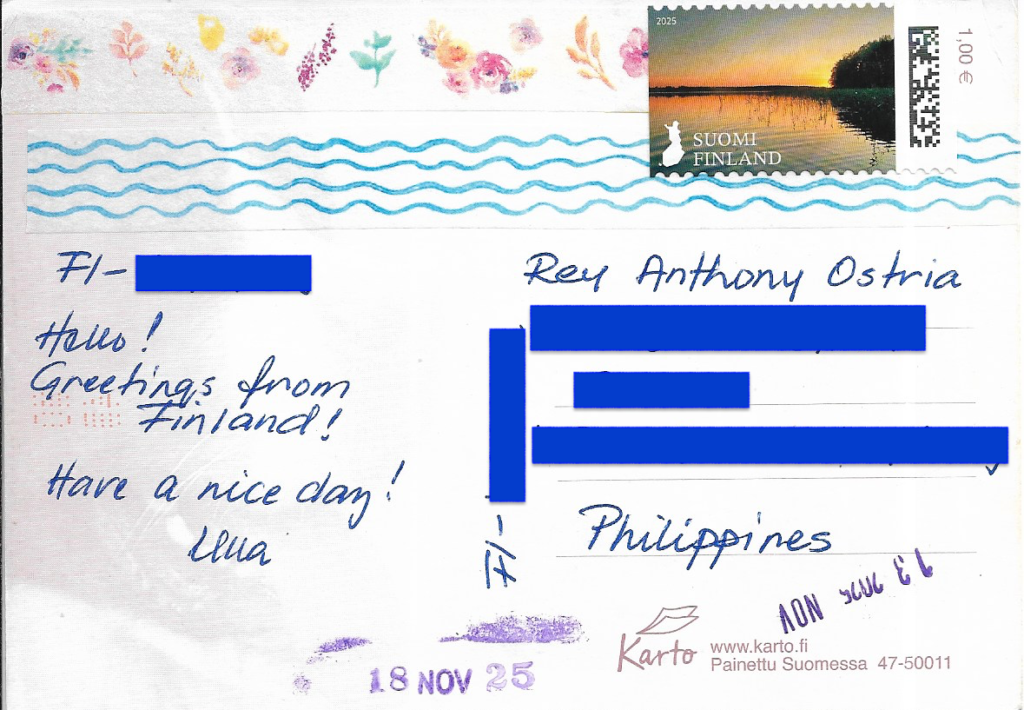 2025
1,00 €
SUOMI
FINLAND
FI-
Rey Anthony Ostria
Hello!
Greetings from
Finland!
Have a nice day!
Ulla
FI-
Philippines
NOV
18 NOV 25
Karto
www.karto.fi
Painettu Suomessa 47-50011